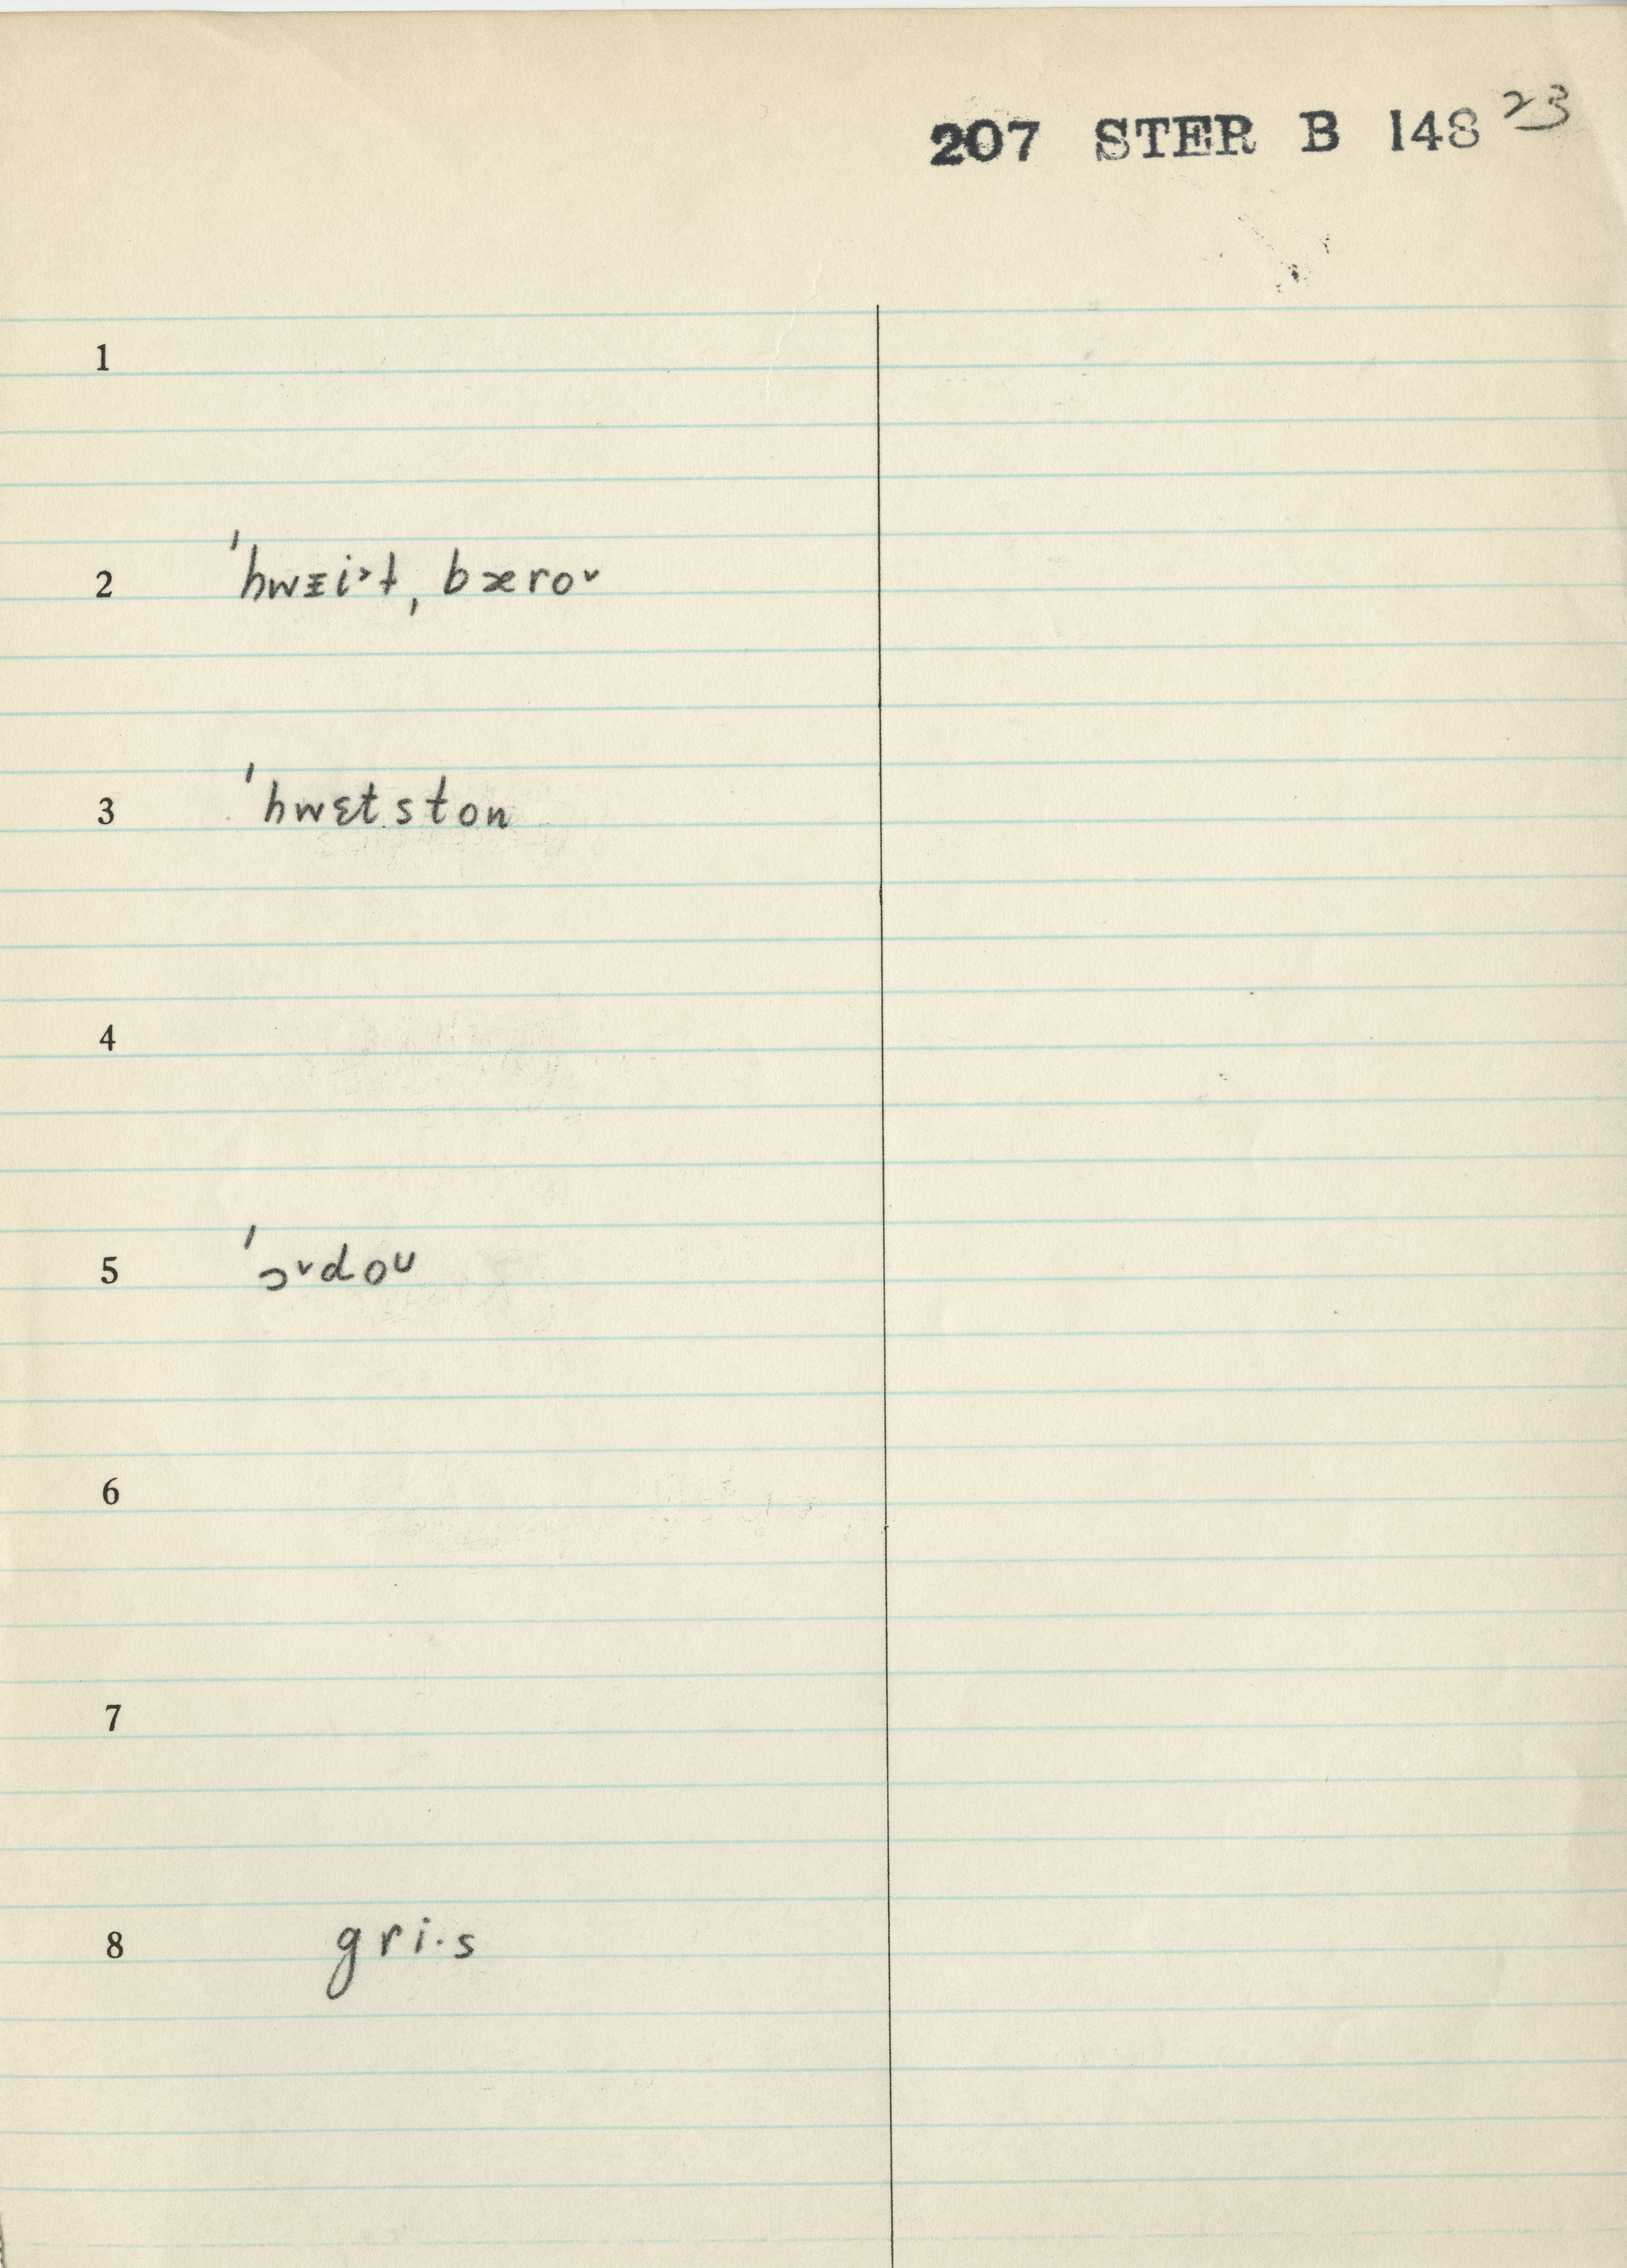 207 STER B 148 23
1
2 ˈhwɪi˃t ˌbæroᵛ
3 ˈhwɛtston
4
5 ˈɔᵛdoᴜ
6
7
8 gri·s